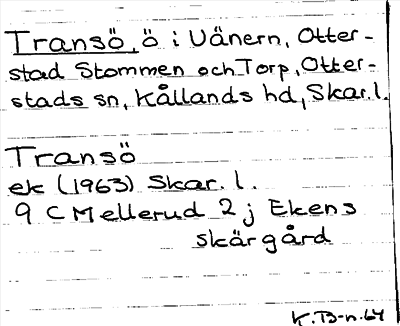 Transö, ö i Vänern, Otter-
stad Stommen och Torp, Otter-
stads sn, Kållands hd, Skar.l.
Transö
ek (1963) Skar.l.
9 C Mellerud 2 j Ekens
skärgård
K.TB-n.64